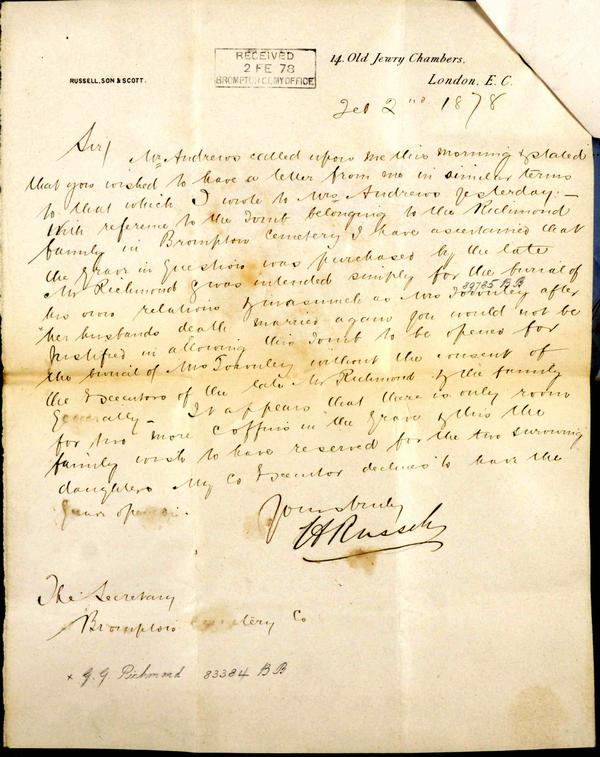 RECEIVED
2 FE 78
BROMPTON CEMY OFFICE
14. Old Jewry Chambers,
RUSSELL, SON & SCOTT.
London, E. C.
Feb 2nd 1878
Sir/ Mr Andrews called upon me this morning & stated
that you wished to have a letter from me in similar terms
to that which I wrote to Mrs Andrews yesterday:-
With reference to the Tomb belonging to the Richmond
family in Brompton Cemetery I have ascertained that
the Grave in Question was purchased by the late
Mr Richmond & was intended simply for the burial of
39785 BB
his own relations & inasmuch as Mrs Townley after
her husbands death married again you would not be
justified in allowing this Tomb to be opened for
the burial of Mrs Townley without the consent of
the Executors of the late Mr Richmond & the family
Generally- It appears that there is only room
for two more coffins in the Grave & this the
family wish to have reserved for the two surviving
daughters My Co Executor declines to have the
Grave opened.
Yours truly
H Russell
The Secretary
Brompton Cemetery Co
x G. G. Richmond 83384 BB